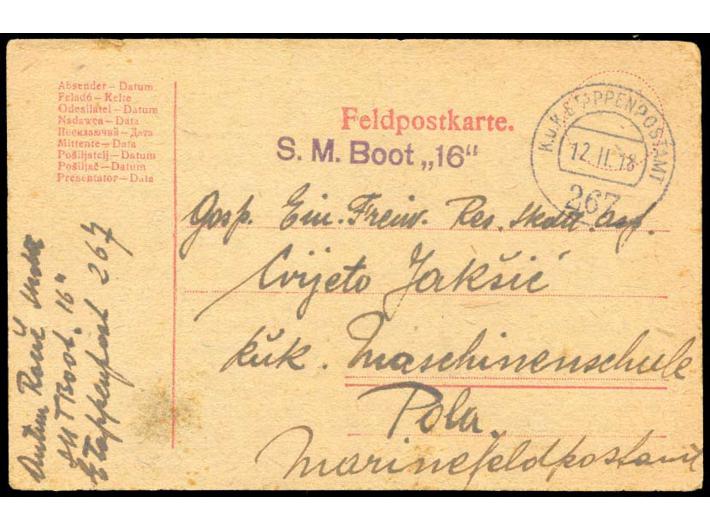 Absender – Datum
Feladó – Kelte
Odesílatel – Datum
Nadawca – Data
Посилаючий – Дата
Mittente – Data
Pošiljatelj – Datum
Pošiljač – Datum
Presentator – Data
Feldpostkarte.
S. M. Boot „16“
K.u.K. ETAPPENPOSTAMT
12.II.18
267
Gosp. Ein. Freiw. Res.
Cvijeto Jakšić
kuk. Maschinenschule
Pola.
Marinefeldpostamt
Antun
Boot „16“
Etappenpost 267